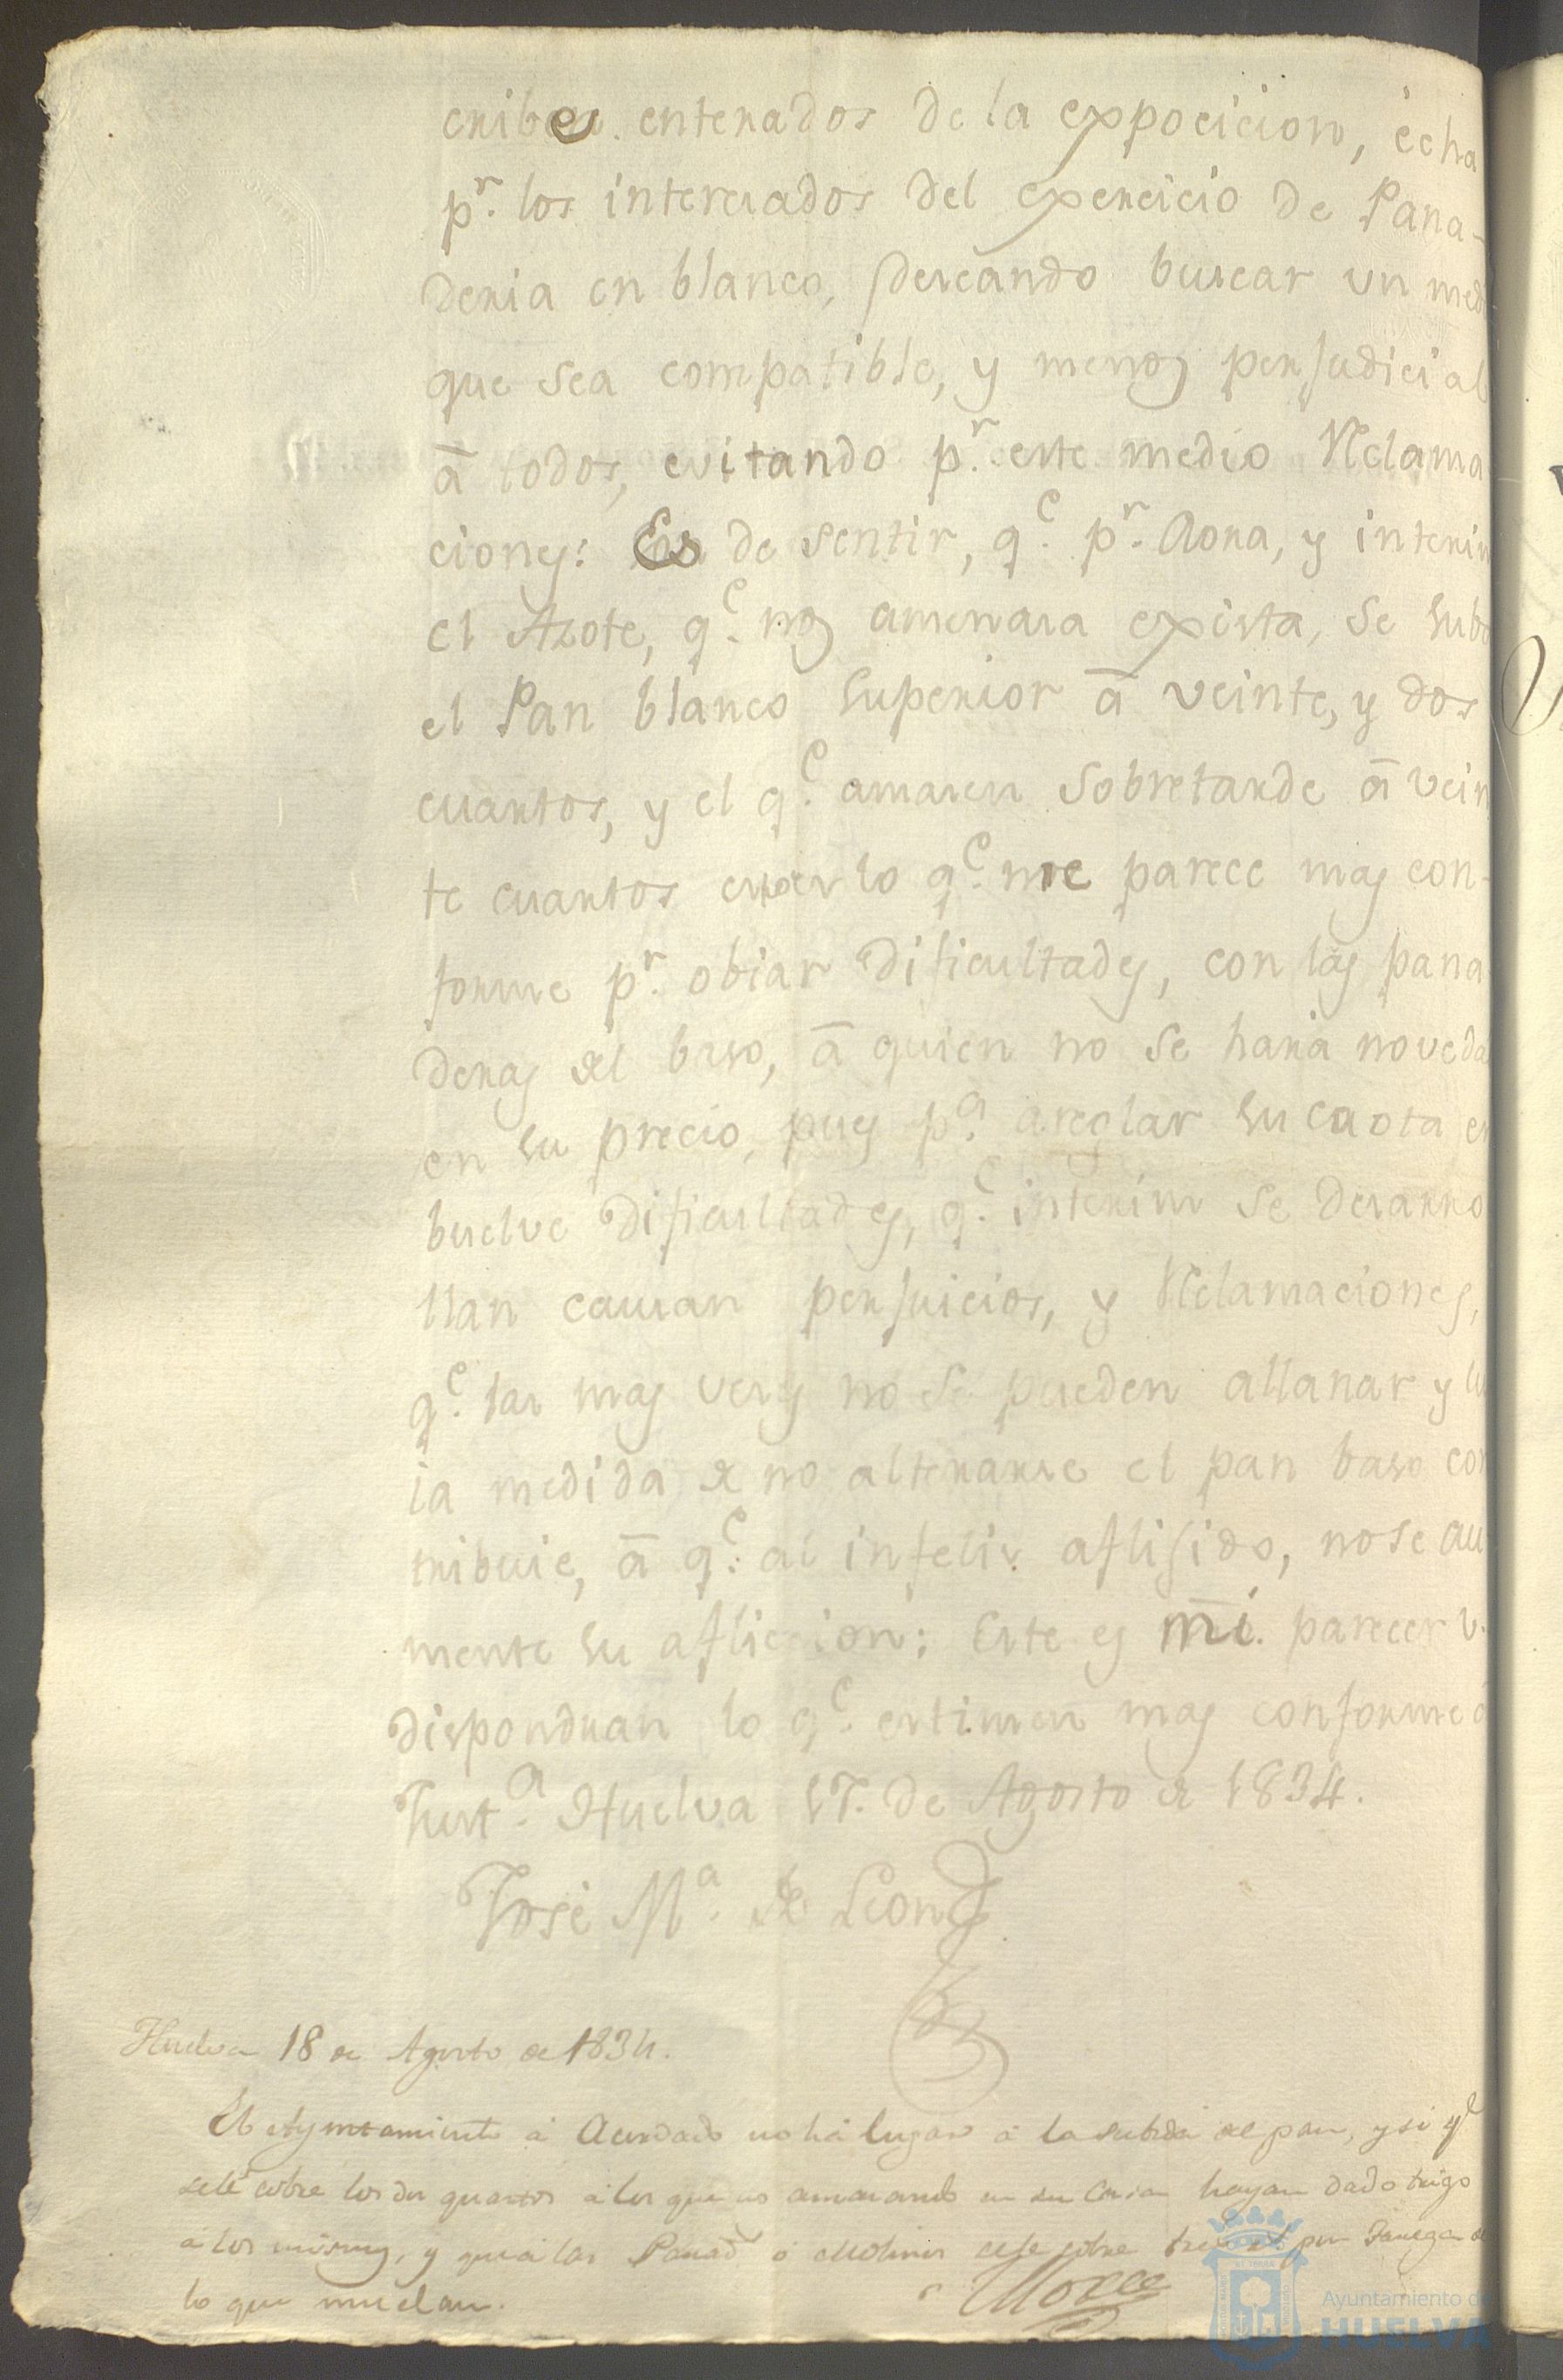 cribes. enterados de la exposicion, echa
pr. los interesados del exercicio de Pana-
deria en blanco, deseando buscar un med
que sea compatible, y menos perjudicial
ā todos, evitando pr. este medio Reclama
ciones: Es de sentir, qe. pr. aora, y interin
el Azote, qe. nos amenasa exista, se suba
el Pan blanco superior ā veinte, y dos
cuartos, y el qe. amasen sobretarde ā vein
te cuartos lo qe. me parece mas con-
forme pr. obiar dificultades, con las pana
deras del baso, ā quien no se haria noveda
en su precio, pues pa. areglar su caota en
buelve dificultades, qe. interin se desarro
llan causan perjuicios, y Reclamaciones,
qe. las mas veses no se pueden allanar y
la medida de no alterarse el pan baso con
tribuie, ā qe. al infelis aflijido, no se au
mente su afliccion: Este es mi parecer v.
dispondran lo qe. estimen mas conforme á
Justa. Huelva 17. de Agosto de 1834.
José Ma. de Leon
Huelva 18 de Agosto de 1834.
El Ayuntamiento á Acordado no há lugar á la subida del pan, y si qe
se le cobre los dos quartos á los que no amasando en su casa hayan dado trigo
á los mismos, y que á las Panads ó Molinos se le cobre por Fanega de
lo que muelan.
Ayuntamiento de
HUELVA